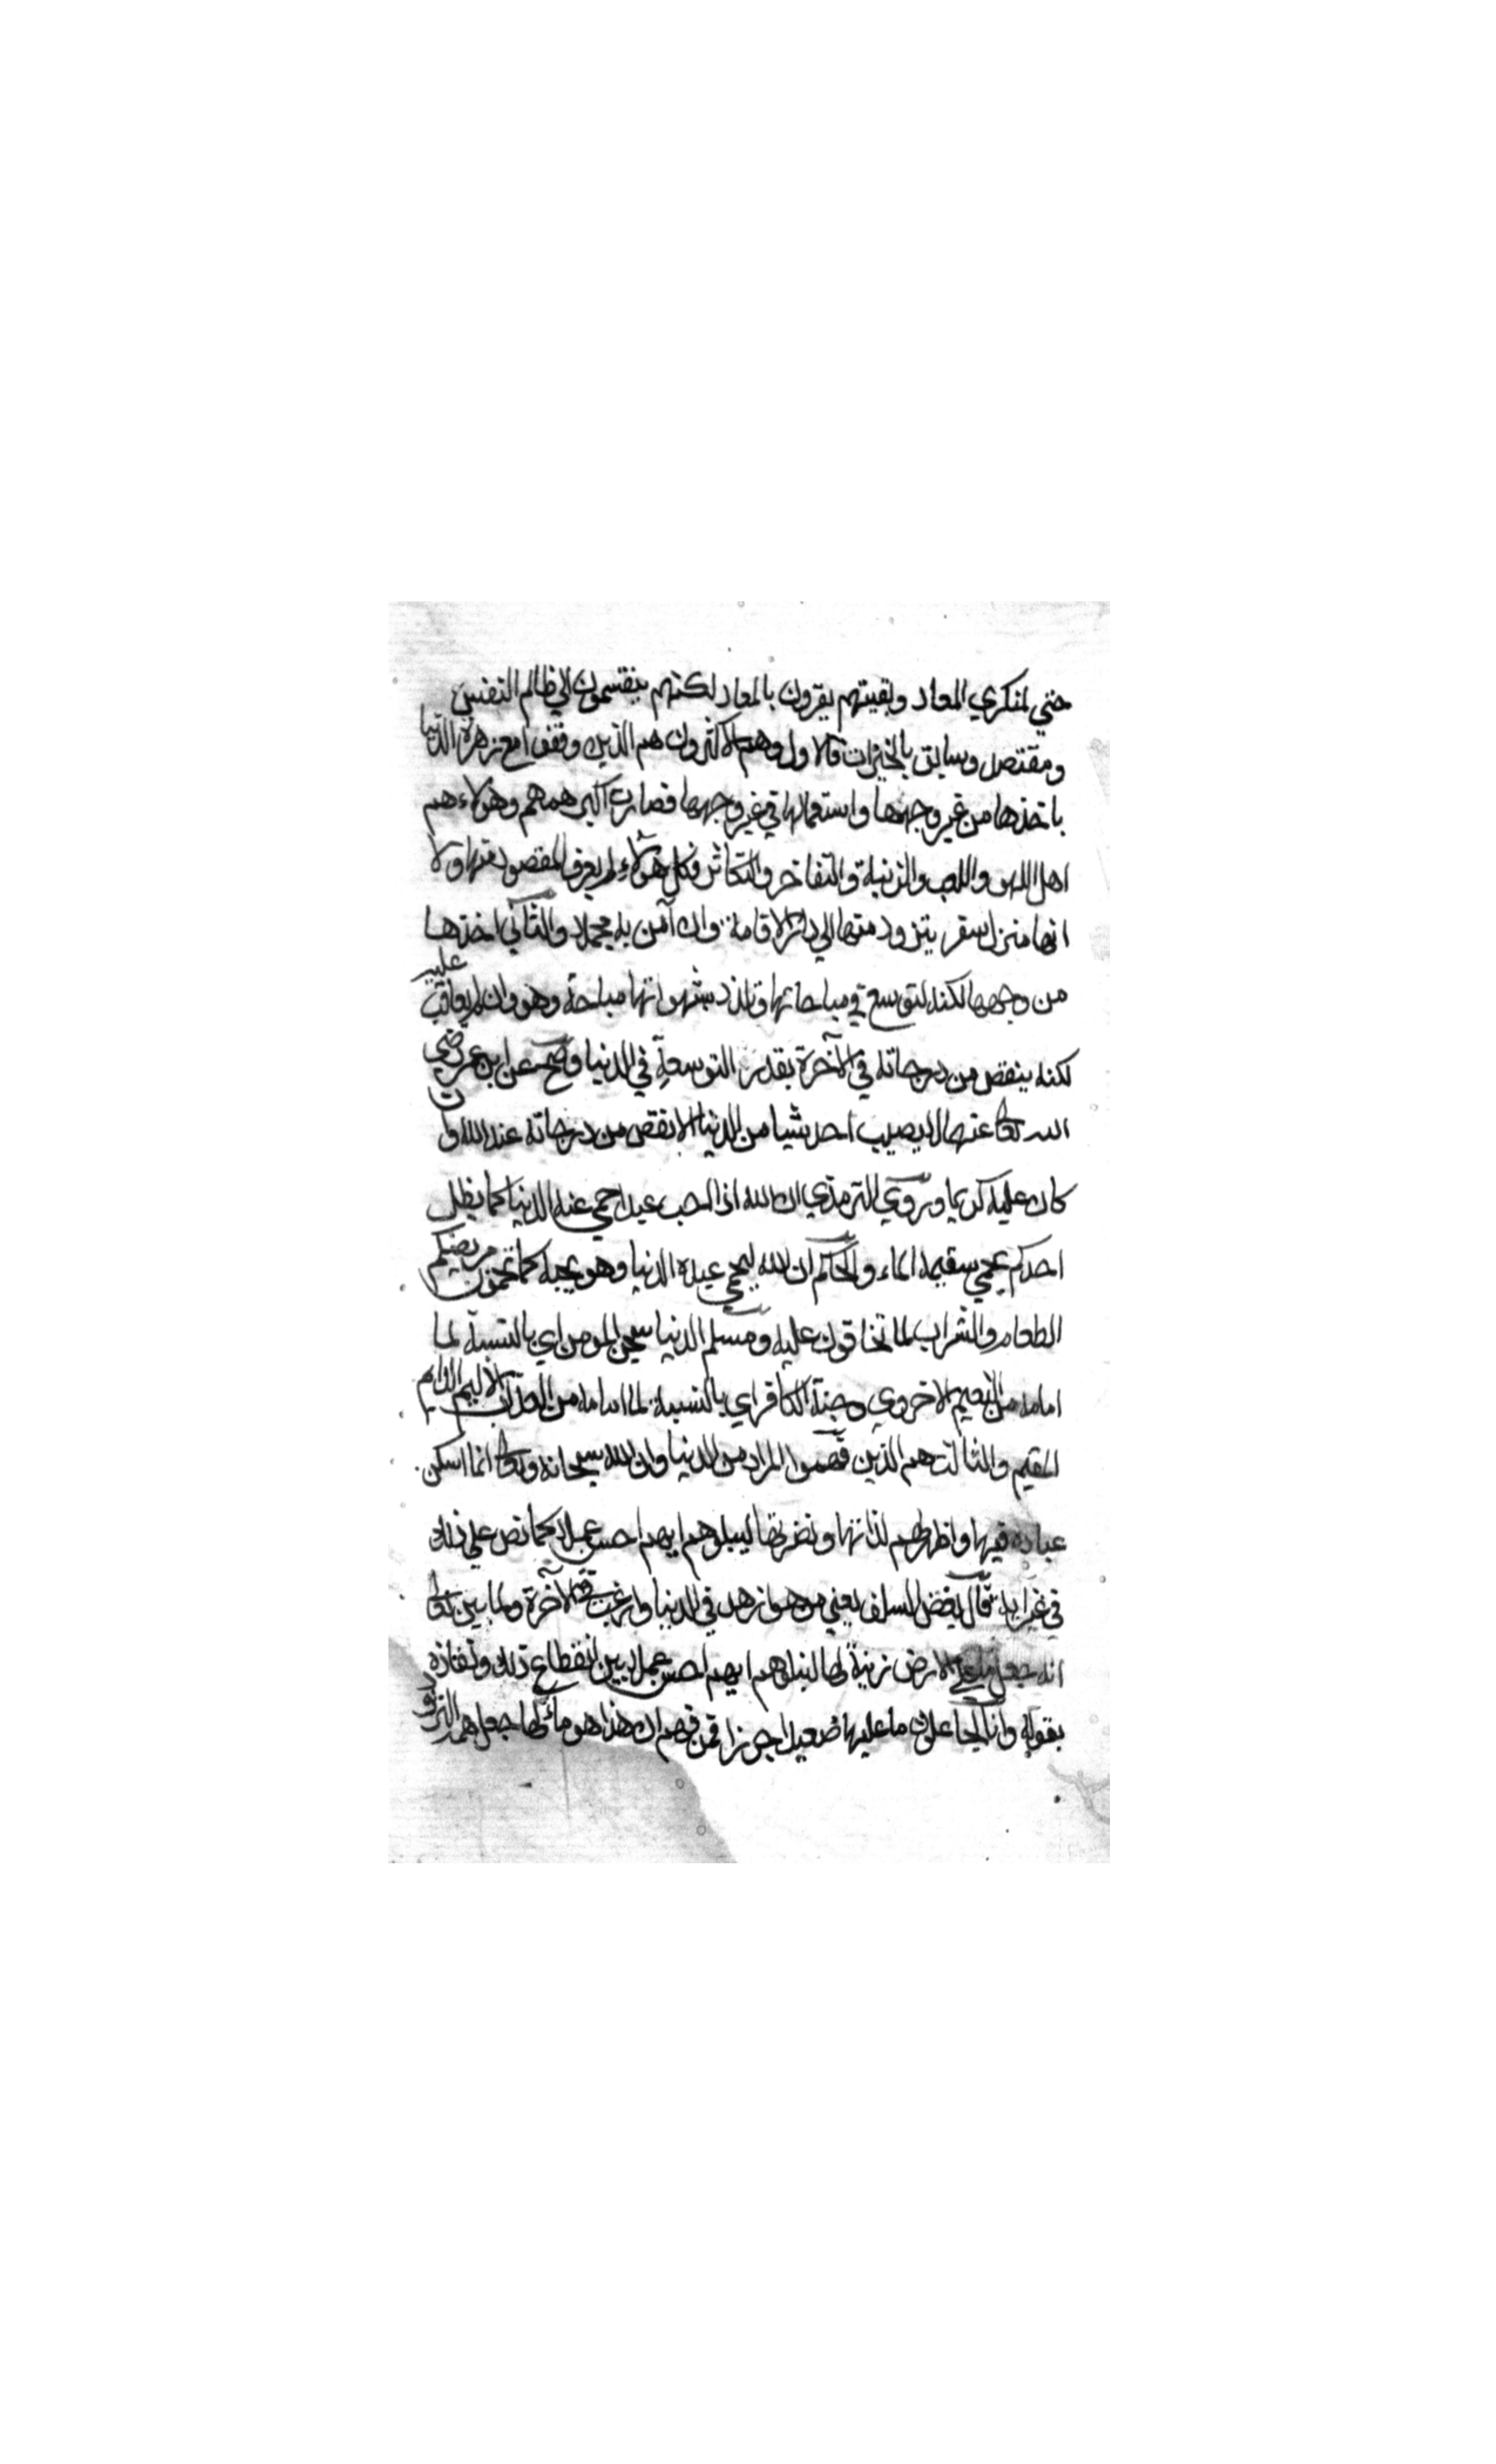 حتي لمنكري المعاد وبقيتهم يقرون بالمعاد لكنهم ينقسمون الي ظالم النفس
ومقتصد وسابق بالخيرات فالاول وهم الاكثرون هم الذين وقفوا مع زهرة الدنيا
باخذها من غير وجهها واستعمالها في غير وجهها فصارت اكبر همهم وهؤلاء هم
اهل اللهو واللعب والزينة والتفاخر والتكاثر فكل هؤلاء لم يعرف المقصود منها ولا
انها منزل سفر يتزود منها الي دار الاقامة وان آمن به مجملا والثاني اخذها
من وجهها لكنه توسع في مباحاتها وتلذذ بشهواتها مباحة وهو وان لم يعاقب عليه
لكنه ينقص من درجاته في الآخرة بقدر التوسعة في الدنيا وصح عن ابن عمر رضي
الله تعالى عنهما لا يصيب احد شيا من الدنيا الا نقص من درجاته عند الله وان
كان عليه كريما وروي الترمذي ان الله اذا احب عبدا حمي عنه الدنيا كما يظل
احدكم يحمي سقيمه الماء والحاكم ان الله ليحمي عبده الدنيا وهو يحبه كما تحمون مريضكم
الطعام والشراب لما تخافون عليه ومسلم الدنيا سجن المومن اي بالنسبة لما
امامه من النعيم الاخروي وجنة الكافر اي بالنسبة لما امامه من العذاب الاليم الدايم
المقيم والثالث هم الذين فهموا المراد من الدنيا وان الله سبحانه وتعالى انما اسكن
عباده فيها واظهر لهم لذاتها ونضرتها ليبلوهم ايهم احسن عملا كما نص علي ذلك
في غير اية قال بعض السلف يعني من هو ازهد في الدنيا وارغب في الآخرة ولما بين تعالى
انه جعل ما علي الارض زينة لها لنبلوهم ايهم احسن عملا بين انقطاع ذلك ونفاذه
بقوله وانا لجاعلون ما عليها صعيدا جرزا فمن فهم ان هذا هو مآلها جعل همه التزود